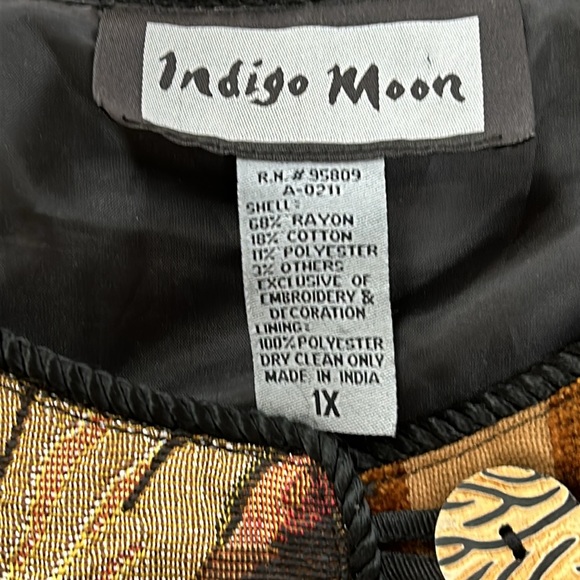 Indigo Moon
R.N.# 95809
A-0211
SHELL:
68% RAYON
18% COTTON
11% POLYESTER
3% OTHERS
EXCLUSIVE OF
EMBROIDERY &
DECORATION
LINING:
100% POLYESTER
DRY CLEAN ONLY
MADE IN INDIA
1X